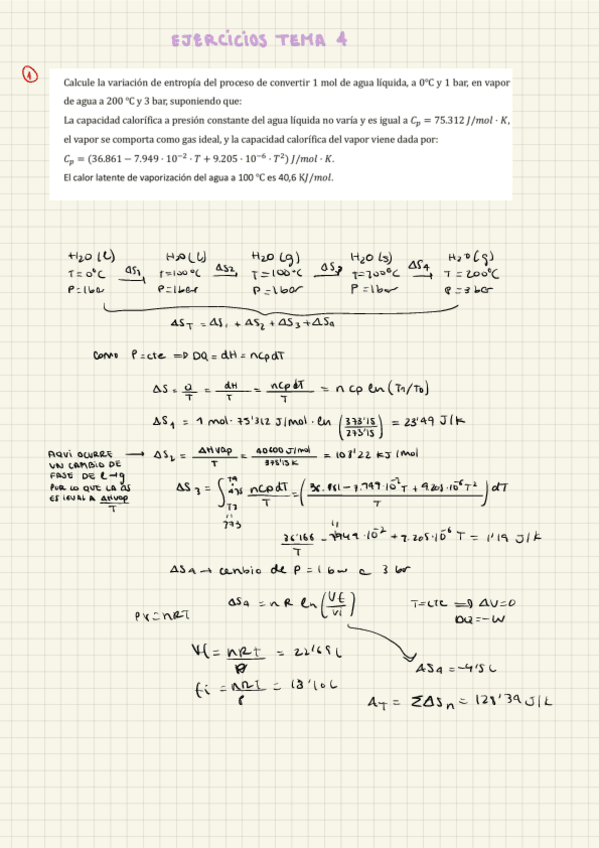 EJERCICIOS TEMA 4
1
Calcule la variación de entropía del proceso de convertir 1 mol de agua líquida, a 0°C y 1 bar, en vapor
de agua a 200 °C y 3 bar, suponiendo que:
La capacidad calorífica a presión constante del agua líquida no varía y es igual a Cp = 75.312 J/mol · K,
el vapor se comporta como gas ideal, y la capacidad calorífica del vapor viene dada por:
Cp = (36.861 − 7.949 · 10⁻² · T + 9.205 · 10⁻⁶ · T²) J/mol · K.
El calor latente de vaporización del agua a 100 °C es 40,6 KJ/mol.
H2O (l) H2O (l) H2O (g) H2O (g) H2O (g)
T=0°C ΔS1 T=100°C ΔS2 T=100°C ΔS3 T=200°C ΔS4 T=200°C
P=1bar P=1bar P=1bar P=1bar P=3bar
ΔST = ΔS1 + ΔS2 + ΔS3 + ΔS4
Como P=cte => DQ = dH = nCpdT
ΔS = Q/T = dH/T = nCpdT/T = n cp ln (T1/T0)
ΔS1 = 1 mol · 75'312 J/mol · ln (373'15/273'15) = 23'49 J/K
AQUÍ OCURRE UN CAMBIO DE FASE DE l→g POR LO QUE LA ΔS ES IGUAL A ΔHvap/T
ΔS2 = ΔHvap/T = 40600 J/mol / 373'15 K = 108'22 kJ/mol
ΔS3 = ∫ nCpdT/T = ( 36.861 − 7.949·10⁻² T + 9.205·10⁻⁶ T² / T ) dT
= 1'19 J/K
ΔS4 → cambio de P = 1 bar a 3 bar
ΔS4 = nR ln (Vf/Vi) T=cte => ΔU=0
PV=nRT DQ=-W
Vf = nRT/P = 22'69 L
= nRT/P = 13'10 L ΔS4 =
AT = ΣΔSn = 128'39 J/K